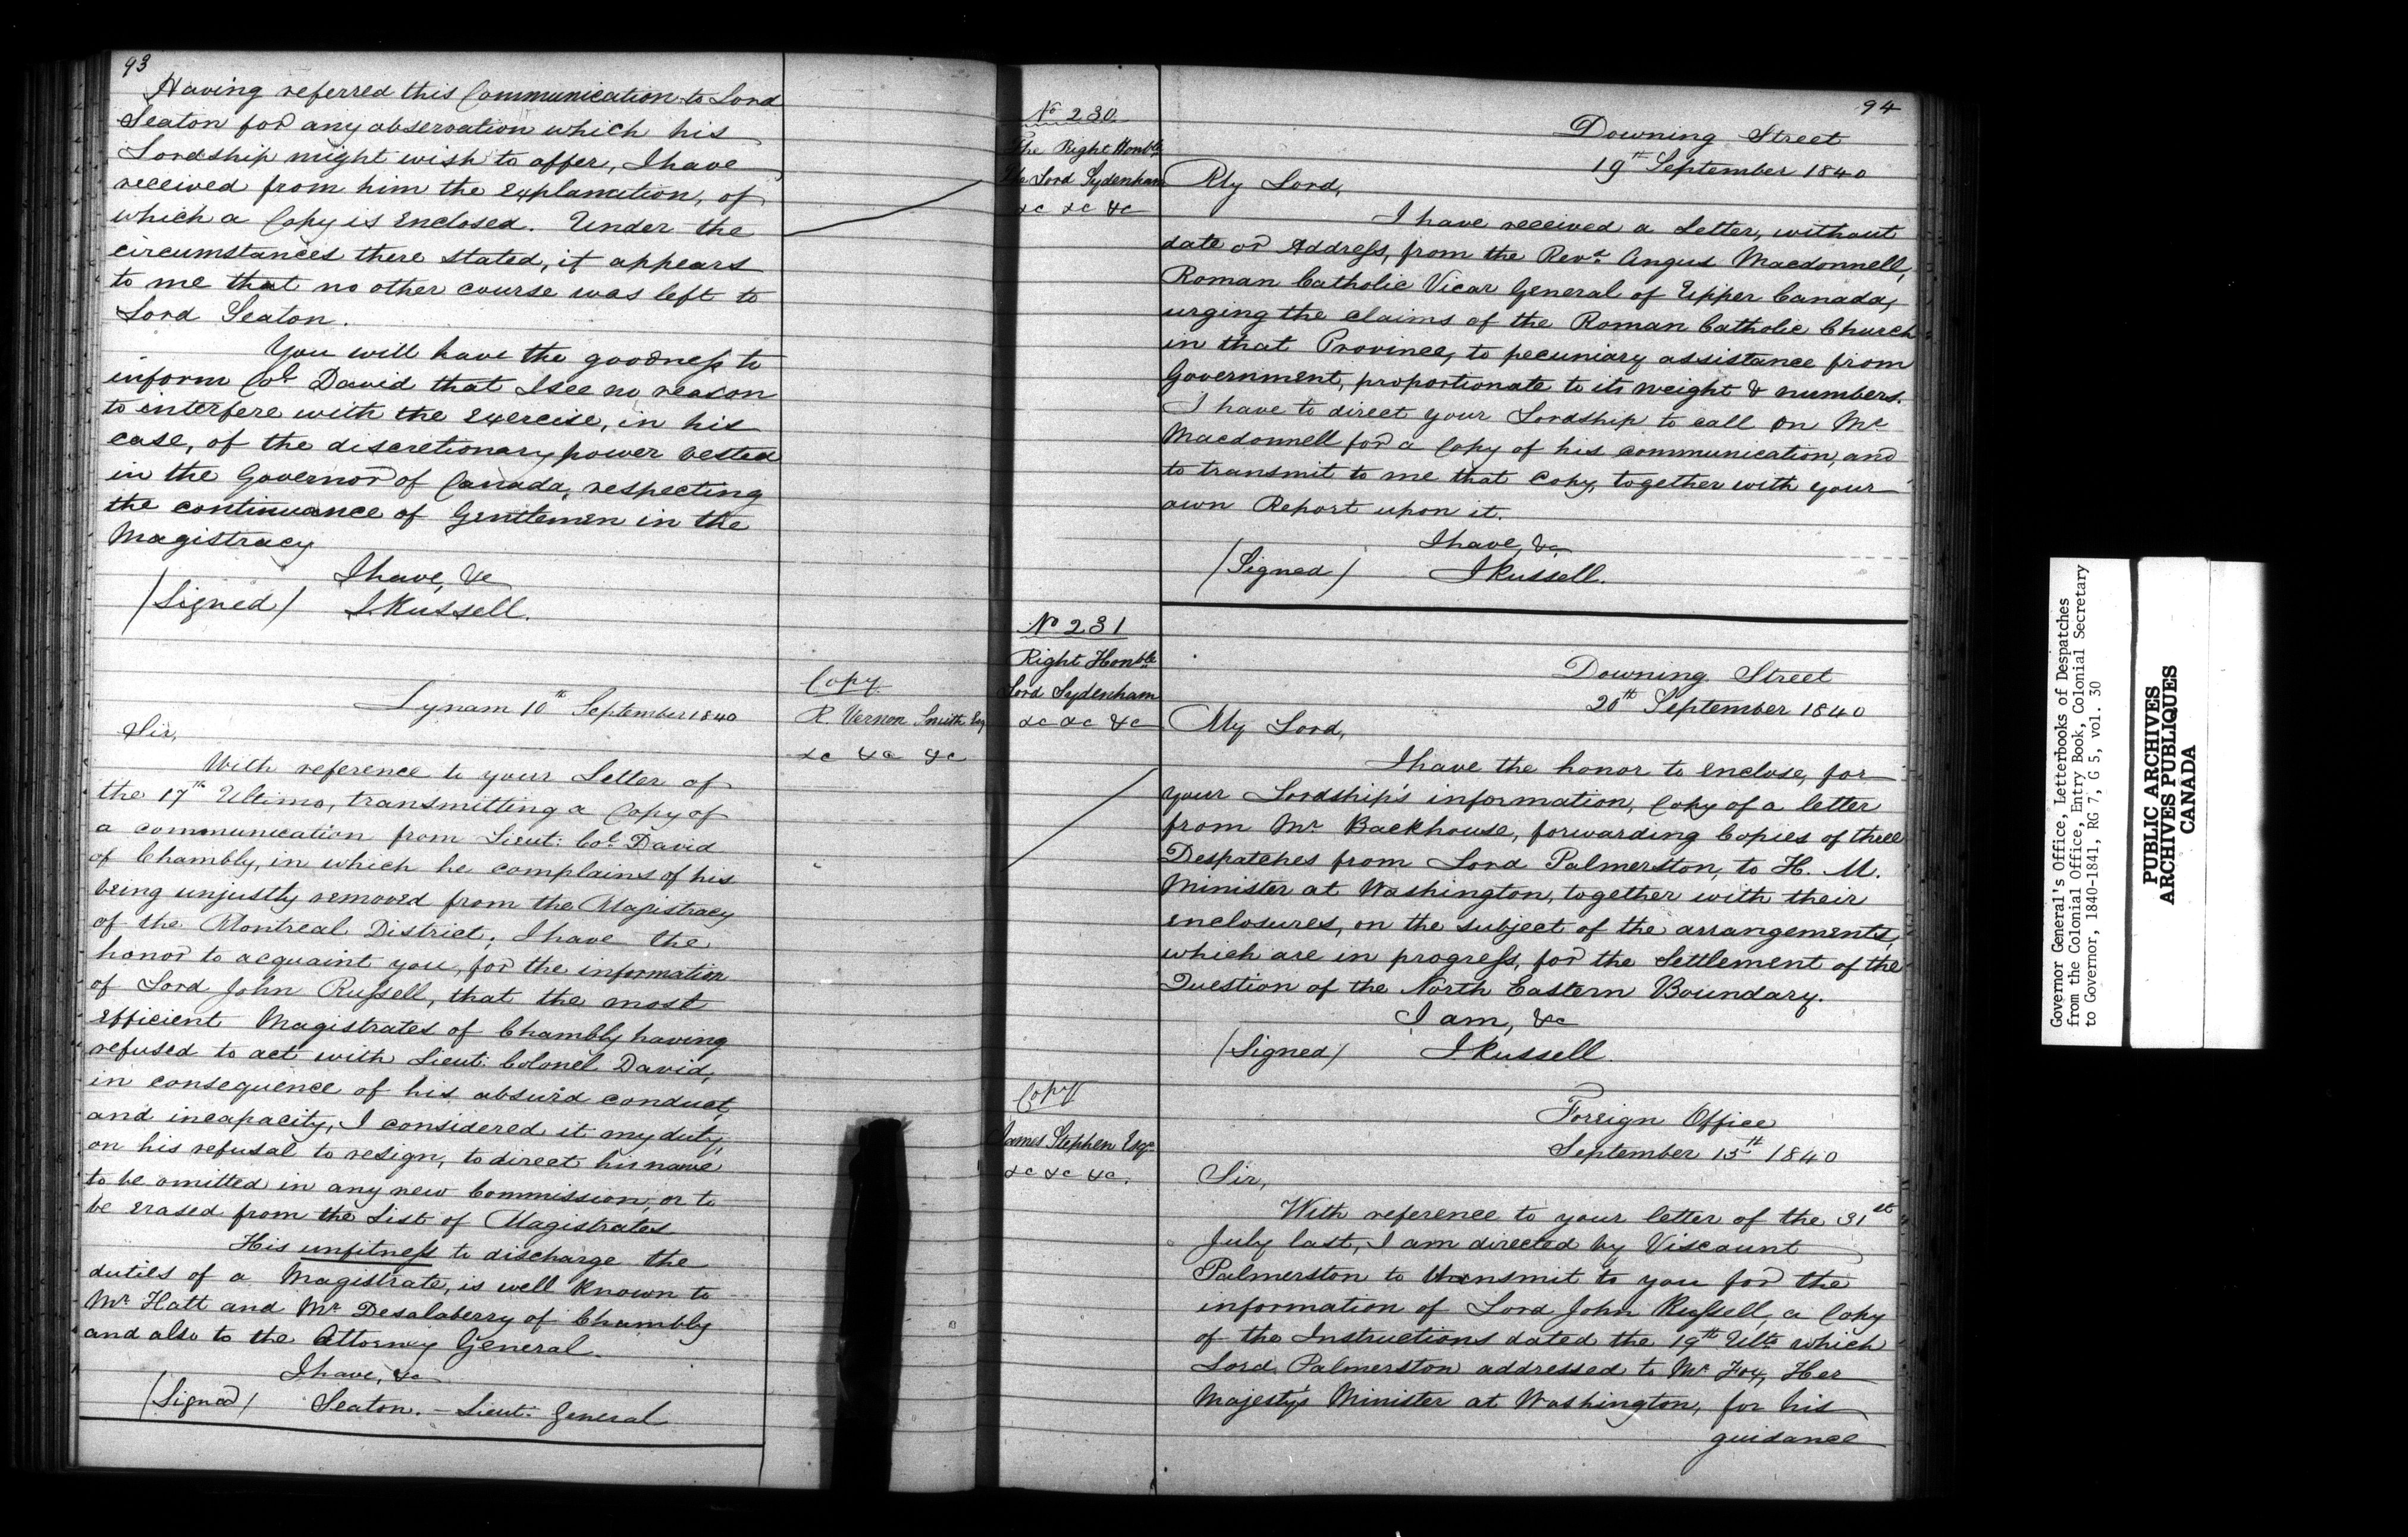 93
Having referred this Communication to Lord
Seaton for any observation which his
Lordship might wish to offer, I have
received from him the explanation, of
which a Copy is enclosed. Under the
circumstances there stated, it appears
to me that no other course was left to
Lord Seaton.
You will have the goodness to
inform Col. David that I see no reason
to interfere with the exercise, in his
case, of the discretionary power vested
in the Governor of Canada, respecting
the continuance of Gentlemen in the
Magistracy
I have, &c
/Signed/ J Russell.
Copy
R. Vernon Smith Esq
&c &c &c
Lynam 10th September 1840
Sir,
With reference to your Letter of
the 17th Ultimo, transmitting a Copy of
a communication from Lieut: Col. David
of Chambly, in which he complains of his
being unjustly removed from the Magistracy
of the Montreal District; I have the
honor to acquaint you, for the information
of Lord John Russell, that the most
efficient Magistrates of Chambly having
refused to act with Lieut: Colonel David,
in consequence of his absurd conduct,
and incapacity, I considered it my duty,
on his refusal to resign, to direct his name
to be omitted in any new Commission, or to
be erased from the List of Magistrates
His unfitness to discharge the
duties of a Magistrate, is well known to
Mr Hatt and Mr Desalaberry of Chambly
and also to the Attorney General.
I have, &c
/Signed/ Seaton. - Lieut: General
94
No 230
The Right Honble
The Lord Sydenham
&c &c &c
Downing Street
19th September 1840
My Lord,
I have received a Letter, without
date or Address, from the Revd. Angus Macdonnell,
Roman Catholic Vicar General of Upper Canada,
urging the claims of the Roman Catholic Church
in that Province, to pecuniary assistance from
Government, proportionate to its weight & numbers.
I have to direct your Lordship to call on Mr
Macdonnell for a Copy of his communication, and
to transmit to me that Copy, together with your
own Report upon it.
I have, &c
/Signed/ J Russell.
No 231
Right Honble
Lord Sydenham
&c &c &c
Downing Street
20th September 1840
My Lord,
I have the honor to enclose, for
your Lordship's information, Copy of a letter
from Mr Backhouse, forwarding Copies of three
Despatches from Lord Palmerston, to H. M.
Minister at Washington, together with their
enclosures, on the subject of the arrangements,
which are in progress, for the Settlement of the
Question of the North Eastern Boundary.
I am, &c
/Signed/ J Russell.
Copy
James Stephen Esqr
&c &c &c.
Foreign Office
September 15th 1840
Sir,
With reference to your letter of the 31st
July last, I am directed by Viscount
Palmerston to transmit to you for the
information of Lord John Russell, a Copy
of the Instructions dated the 19th Ulto which
Lord Palmerston addressed to Mr Fox, Her
Majesty's Minister at Washington, for his
guidance
Governor General's Office, Letterbooks of Despatches
from the Colonial Office, Entry Book, Colonial Secretary
to Governor, 1840-1841, RG 7, G 5, vol. 30
PUBLIC ARCHIVES
ARCHIVES PUBLIQUES
CANADA